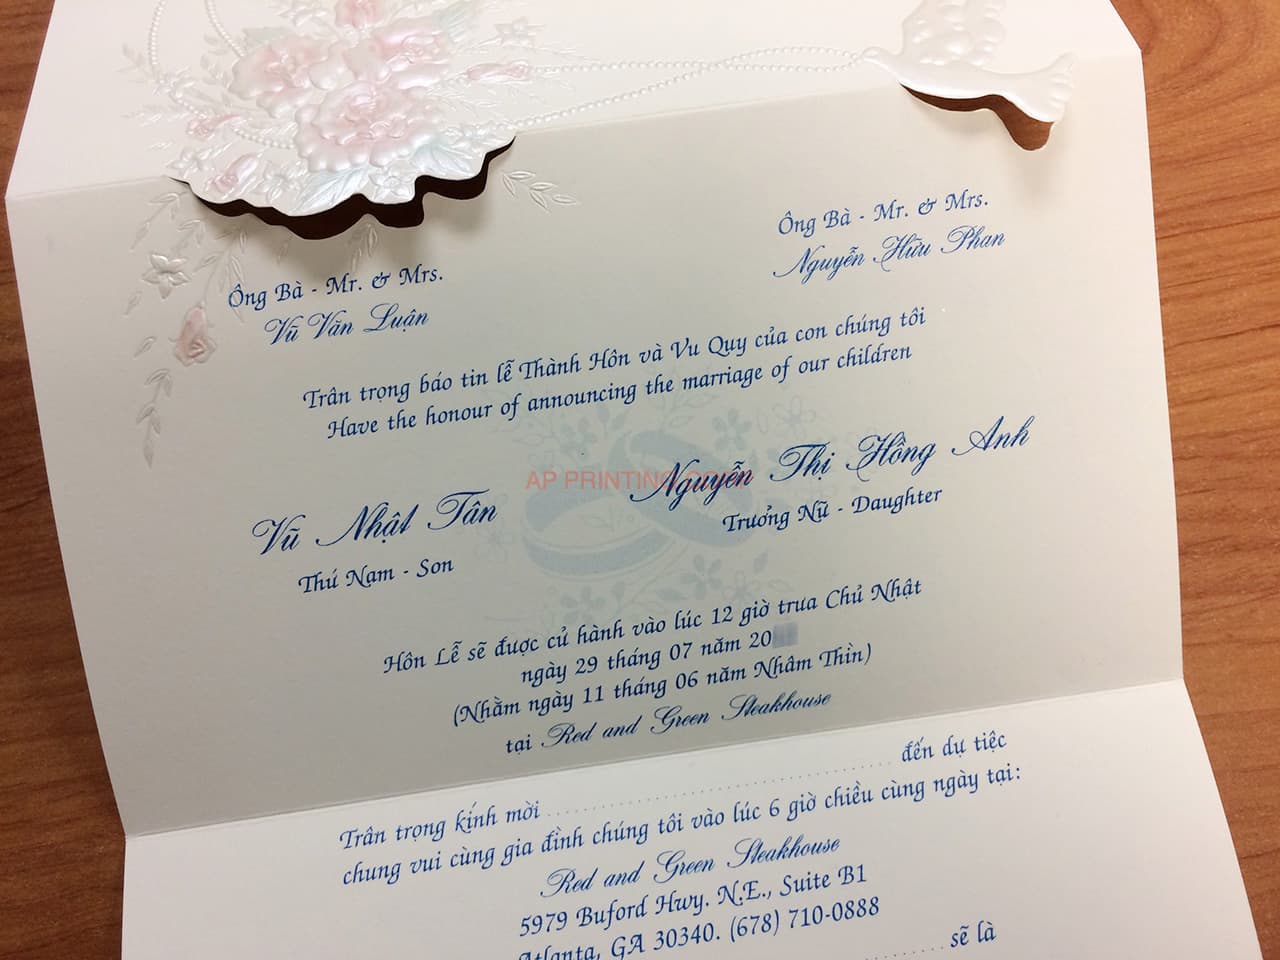 Ông Bà - Mr. & Mrs.
Vũ Văn Luận
Ông Bà - Mr. & Mrs.
Nguyễn Hữu Phan
Trân trọng báo tin lễ Thành Hôn và Vu Quy của con chúng tôi
Have the honour of announcing the marriage of our children
Vũ Nhật Tân
Thứ Nam - Son
Nguyễn Thị Hồng Anh
Trưởng Nữ - Daughter
AP PRINTING
Hôn Lễ sẽ được cử hành vào lúc 12 giờ trưa Chủ Nhật
ngày 29 tháng 07 năm 20
(Nhằm ngày 11 tháng 06 năm Nhâm Thìn)
tại Red and Green Steakhouse
Trân trọng kính mời ........................................ đến dự tiệc
chung vui cùng gia đình chúng tôi vào lúc 6 giờ chiều cùng ngày tại:
Red and Green Steakhouse
5979 Buford Hwy. N.E., Suite B1
Atlanta, GA 30340. (678) 710-0888
sẽ là